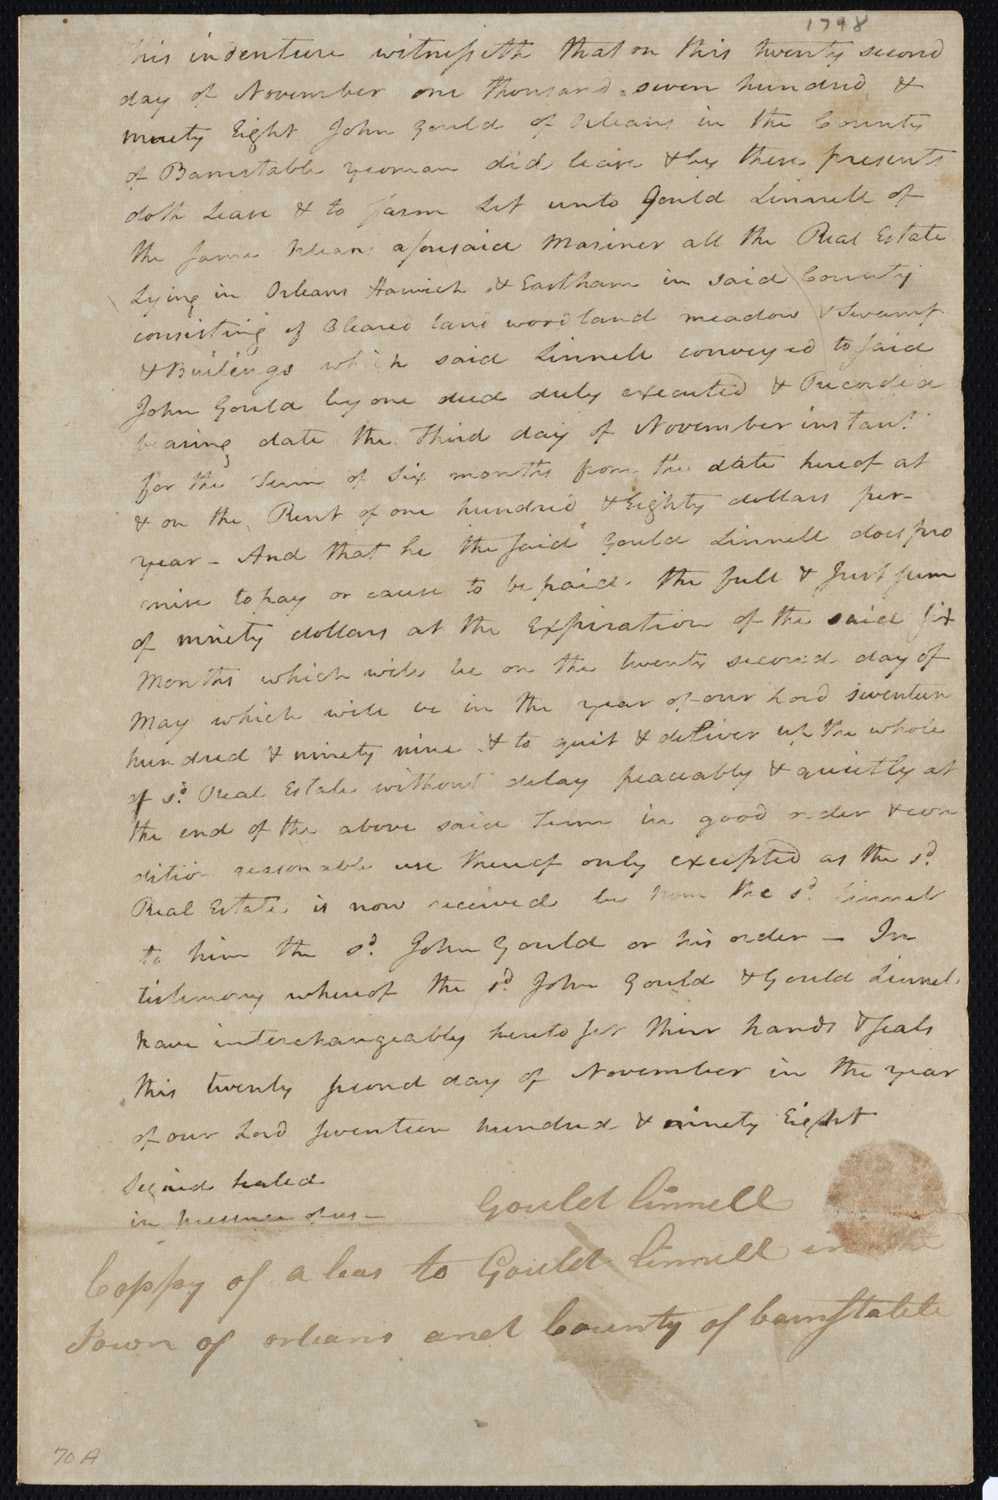 1798
This indenture witnesseth that on this twenty second
day of November one thousand seven hundred &
ninety Eight John Gould of Orleans in the County
of Barnstable yeoman did leave & by these presents
doth Leave & to farm Let unto Gould Linnell of
the same Orleans aforesaid Mariner all the Real Estate
Lying in Orleans Harwich & Eastham in said County
consisting of Cleared land woodland meadow & Swamp
& Buildings which said Linnell conveyed to said
John Gould by one deed duly executed & Recorded
bearing date the Third day of November instant
for the Term of Six months from the date hereof at
& on the Rent of one hundred & Eighty dollars per
year - And that he the said Gould Linnell does pro
mise to pay or cause to be paid the full & Just sum
of ninety dollars at the Expiration of the said six
Months which will be on the twenty second day of
May which will be in the year of our Lord seventeen
hundred & ninety nine & to quit & deliver up the whole
of sd Real Estate without delay peaceably & quietly at
the end of the above said Term in good order & con
dition reasonable use thereof only excepted as the sd
Real Estate is now received by him the sd Linnell
to him the sd John Gould or his order — In
testimony whereof the sd John Gould & Gould Linnel
have interchangeably hereto set their hands & seals
this twenty second day of November in the year
of our Lord seventeen hundred & ninety Eight
Signed Sealed
in Presence of us —
Gould Linnell
Coppy of a leas to Gould Linnell in the
Town of orleans and County of barnstable
70 A